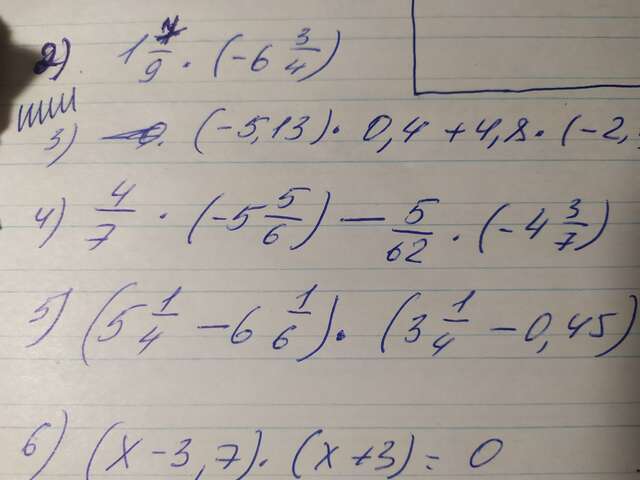 2) 1 7/9 · (-6 3/4)
3) (-5,13) · 0,4 + 4,8 · (-2,
4) 4/7 · (-5 5/6) - 5/62 · (-4 3/7)
5) (5 1/4 - 6 1/6) · (3 1/4 - 0,45)
6) (x - 3,7) · (x + 3) = 0